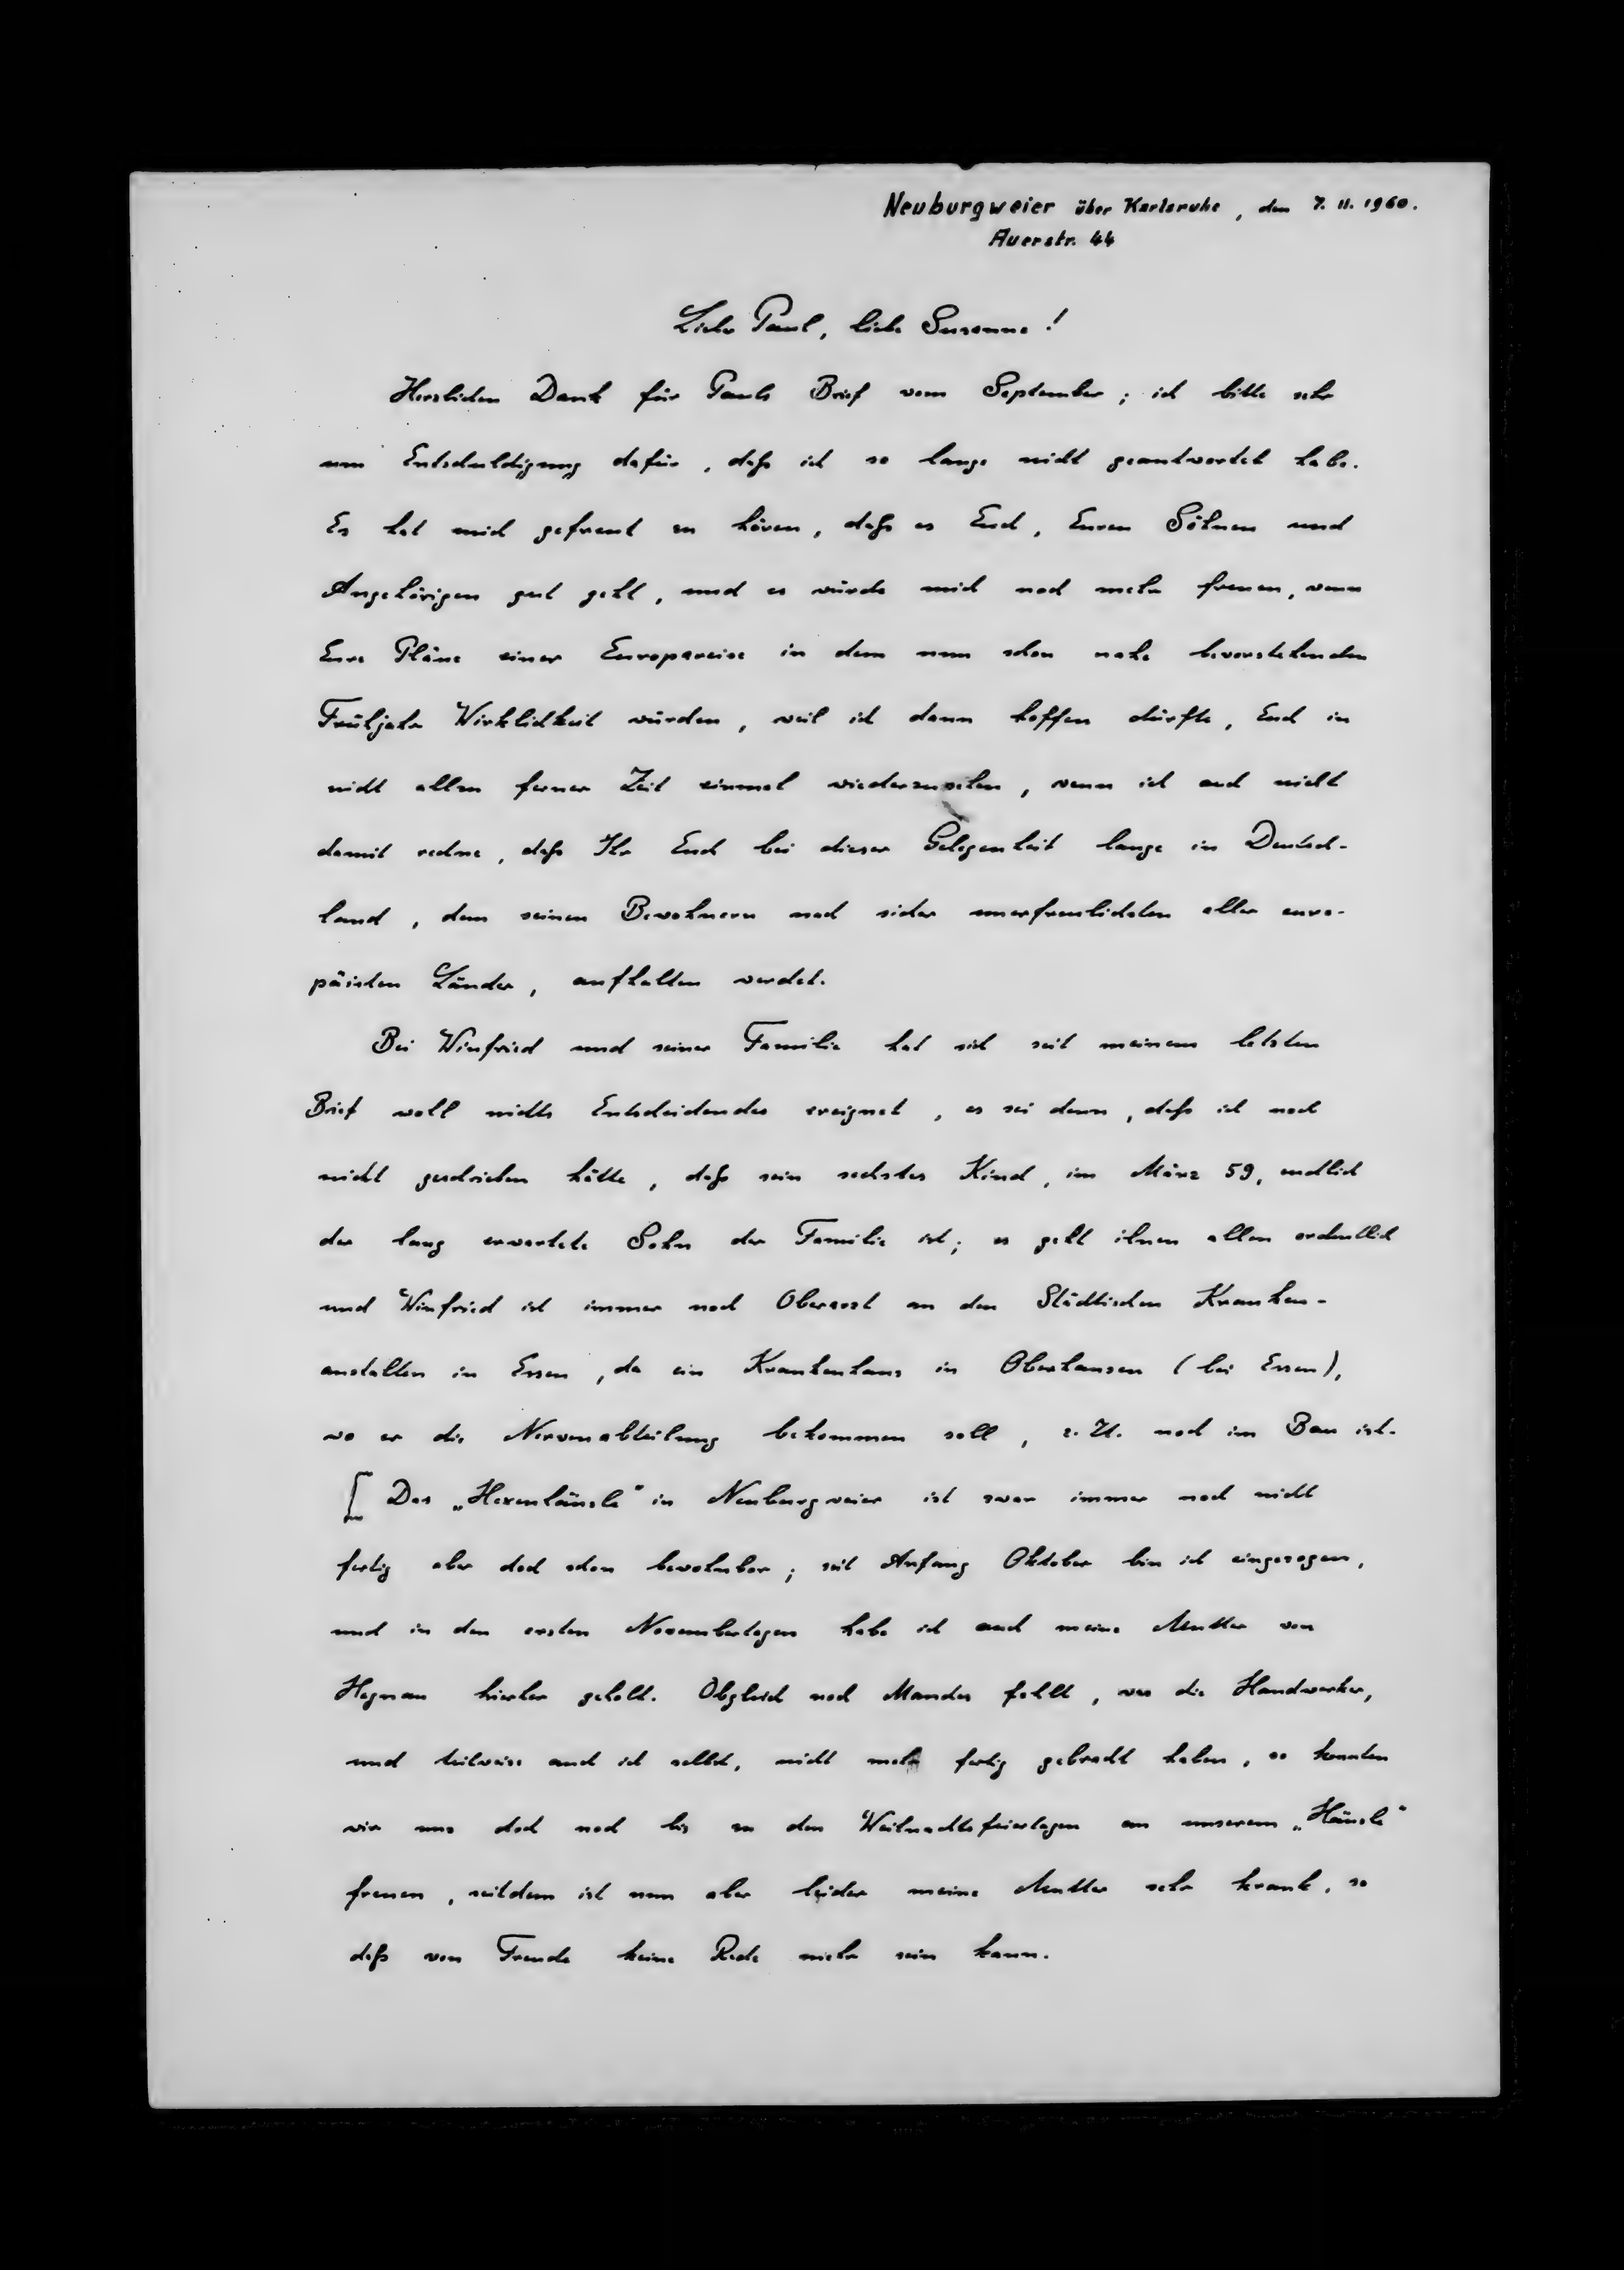 Neuburgweier über Karlsruhe, den 7. II. 1960.
Auerstr. 44
Lieber Paul, liebe Susanne!
Herzlichen Dank für Pauls Brief vom September; ich bitte sehr
um Entschuldigung dafür, daß ich so lange nicht geantwortet habe.
Es hat mich gefreut zu hören, daß es Euch, Euren Söhnen und
Angehörigen gut geht, und es würde mich noch mehr freuen, wenn
Eure Pläne einer Europareise in dem nun schon nahe bevorstehenden
Frühjahr Wirklichkeit würden, weil ich dann hoffen dürfte, Euch in
nicht allzu ferner Zeit einmal wiederzusehen, wenn ich auch nicht
damit rechne, daß Ihr Euch bei dieser Gelegenheit lange in Deutsch-
land, dem seinen Bewohnern nach sicher unerfreulichsten aller euro-
päischen Länder, aufhalten werdet.
Bei Winfried und seiner Familie hat sich seit meinem letzten
Brief wohl nichts Entscheidendes ereignet, es sei denn, daß ich noch
nicht geschrieben hätte, daß sein sechstes Kind, im März 59, endlich
der lang erwartete Sohn der Familie ist; es geht ihnen allen ordentlich
und Winfried ist immer noch Oberarzt an den Städtischen Kranken-
anstalten in Essen, da ein Krankenhaus in Oberhausen (bei Essen),
wo er die Nervenabteilung bekommen soll, z. Zt. noch im Bau ist.
[ Das „Hexenhäusle" in Neuburgweier ist zwar immer noch nicht
fertig aber doch schon bewohnbar; seit Anfang Oktober bin ich eingezogen,
und in den ersten Novembertagen habe ich auch meine Mutter von
Hagnau hierher geholt. Obgleich noch Manches fehlt, was die Handwerker,
und teilweise auch ich selbst, nicht mehr fertig gebracht haben, so konnten
wir uns doch noch bis zu den Weihnachtsfeiertagen an unserem „Häusle"
freuen, seitdem ist nun aber leider meine Mutter sehr krank, so
daß von Freude keine Rede mehr sein kann.